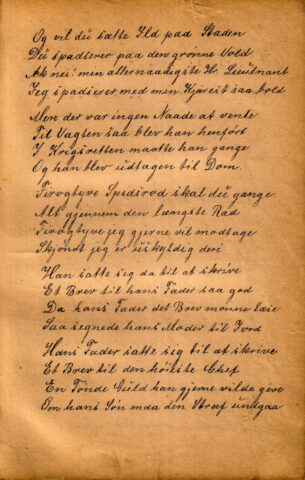 Og vil du sætte Ild paa Staden
Du spadserer paa den grønne Vold
Ak nei! men allernaadigste Hr. Lieutnant
Jeg spadserer med min Kjærest saa bold
Men der war ingen Naade at vente
Til Vagten saa blev han henført
I Krigsretten maatte han gange
Og han blev udtagen til Dom.
Firogtyve Spidsrod skal du gange
Alt gjennem den længste Rad
Firogtyve jeg gjerne vil modtage
Skjøndt jeg er uskyldig deri
Han satte sig da til at skrive
Et Brev til hans Fader saa god
Da hans Fader det Brev monne læse
Saa segnede hans Moder til Jord
Hans Fader satte sig til at skrive
Et Brev til den høieste Chef
En Tønde Guld han gjerne vilde give
Om hans Søn maa den Straf undgaa